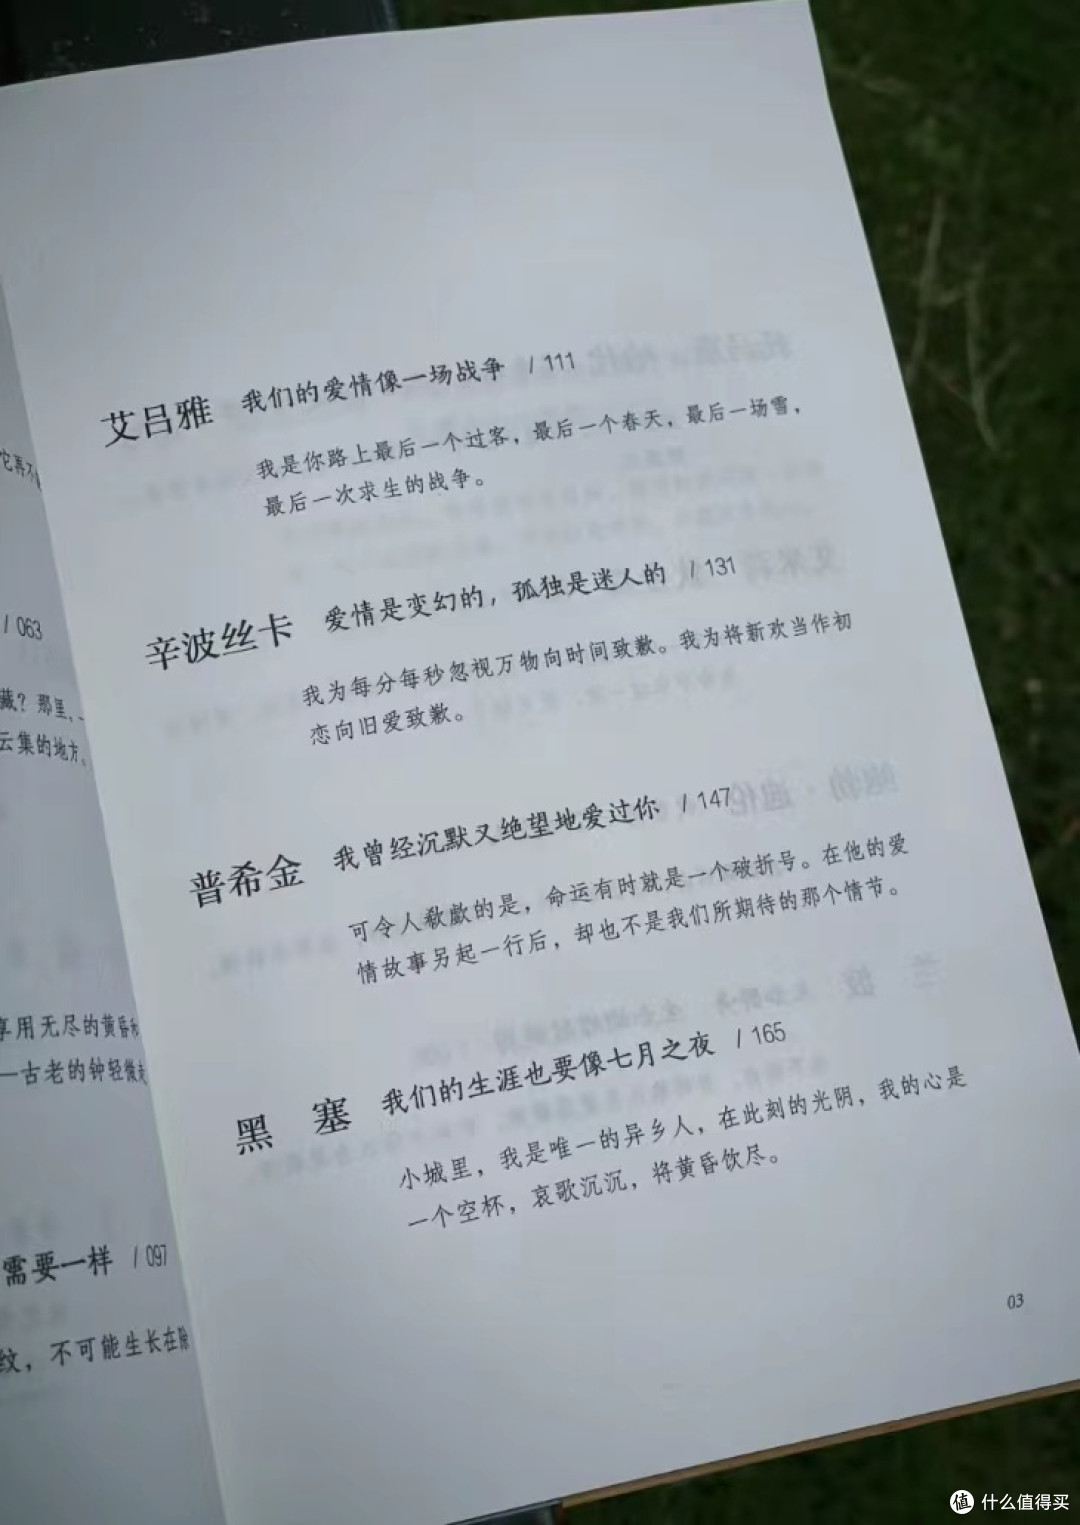 它再不
/ 063
藏？那里，
云集的地方、
享用无尽的黄昏
—古老的钟轻微
需要一样 / 097
纹，不可能生长在除
艾吕雅 我们的爱情像一场战争 / 111
我是你路上最后一个过客，最后一个春天，最后一场雪，
最后一次求生的战争。
辛波丝卡 爱情是变幻的，孤独是迷人的 / 131
我为每分每秒忽视万物向时间致歉。我为将新欢当作初
恋向旧爱致歉。
普希金 我曾经沉默又绝望地爱过你 / 147
可令人欷歔的是，命运有时就是一个破折号。在他的爱
情故事另起一行后，却也不是我们所期待的那个情节。
黑 塞 我们的生涯也要像七月之夜 / 165
小城里，我是唯一的异乡人，在此刻的光阴，我的心是
一个空杯，哀歌沉沉，将黄昏饮尽。
03
值 什么值得买